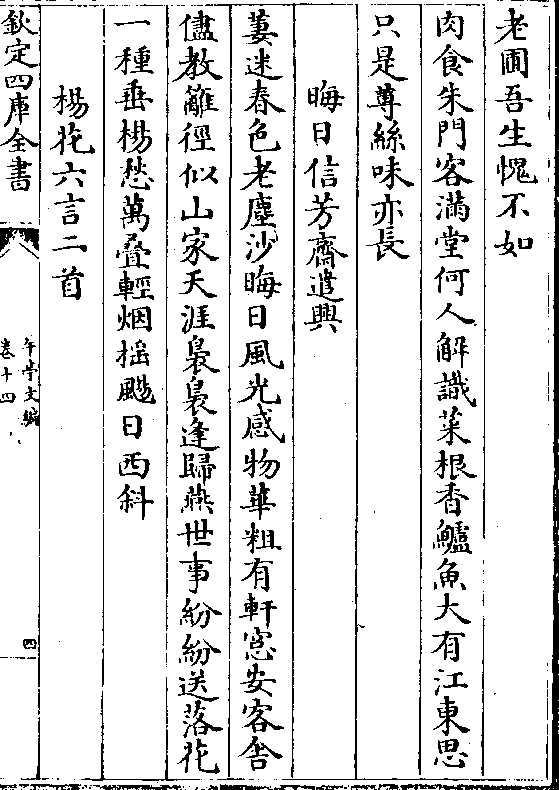 老圃吾生愧不如
肉食朱門客滿堂何人解識菜根香鱸魚大有江東思
只是蓴絲味亦長
晦日信芳齋遣興
萋迷春色老塵沙晦日風光感物華粗有軒窓安客舎
儘教籬徑似山家天涯裊裊逢歸燕世事紛紛送落花
一種垂楊愁萬疊輕烟揺颺日西斜
楊花六言二首
欽定四庫全書
午亭文編
卷十四
四